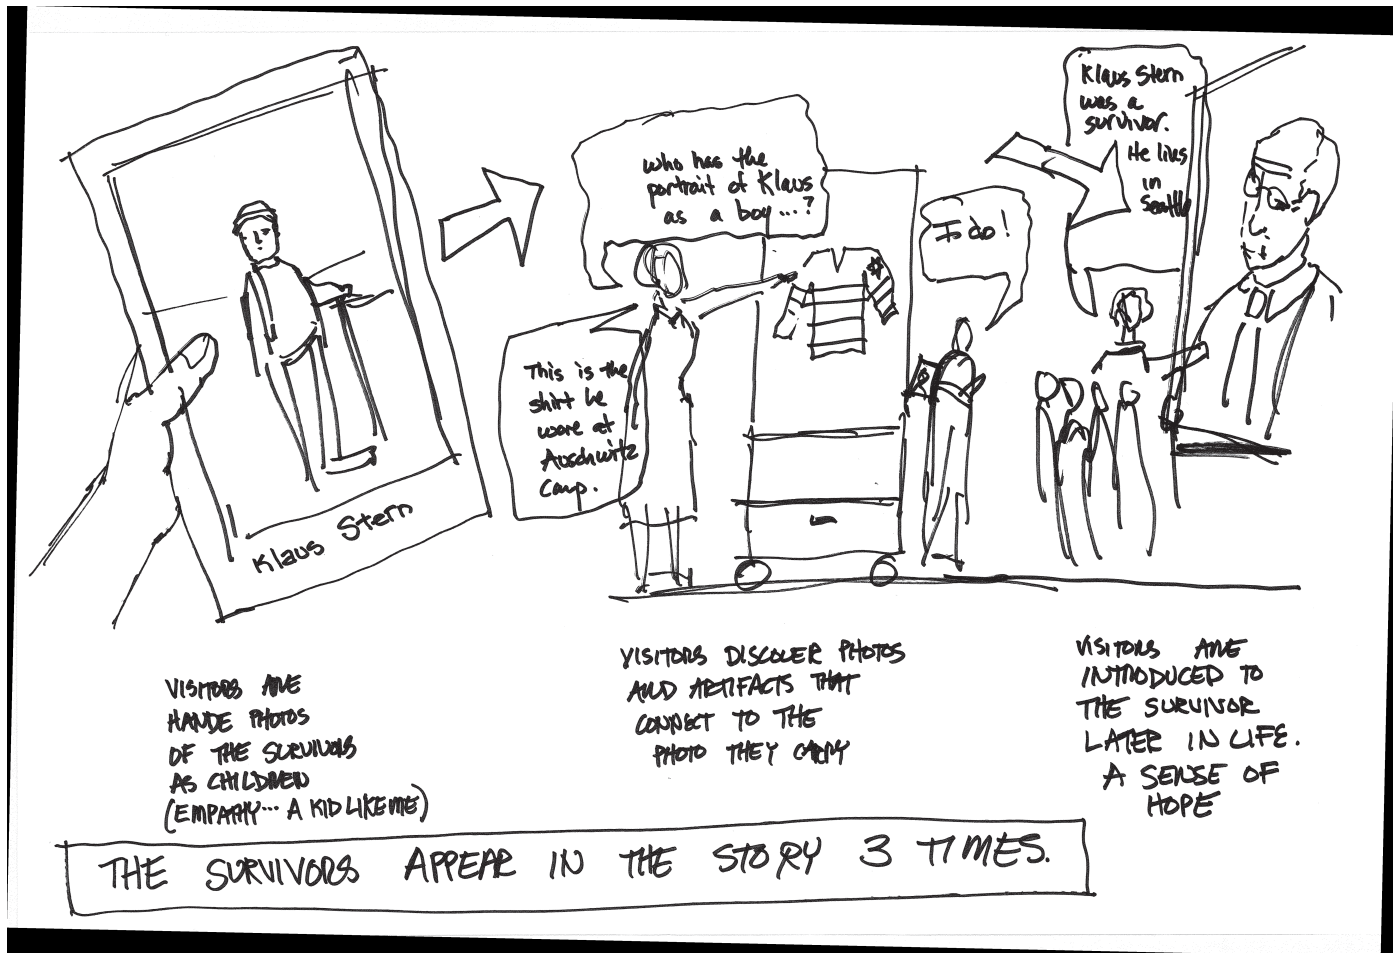 Klaus Stern
who has the
portrait of Klaus
as a boy...?
This is the
shirt he
wore at
Auschwitz
Camp.
I do!
Klaus Stern
was a
survivor.
He lives
in
Seattle
VISITORS ARE
HANDE PHOTOS
OF THE SURVIVORS
AS CHILDREN
(EMPATHY... A KID LIKE ME)
VISITORS DISCOVER PHOTOS
AND ARTIFACTS THAT
CONNECT TO THE
PHOTO THEY CARRY
VISITORS ARE
INTRODUCED TO
THE SURVIVOR
LATER IN LIFE.
A SENSE OF
HOPE
THE SURVIVORS APPEAR IN THE STORY 3 TIMES.